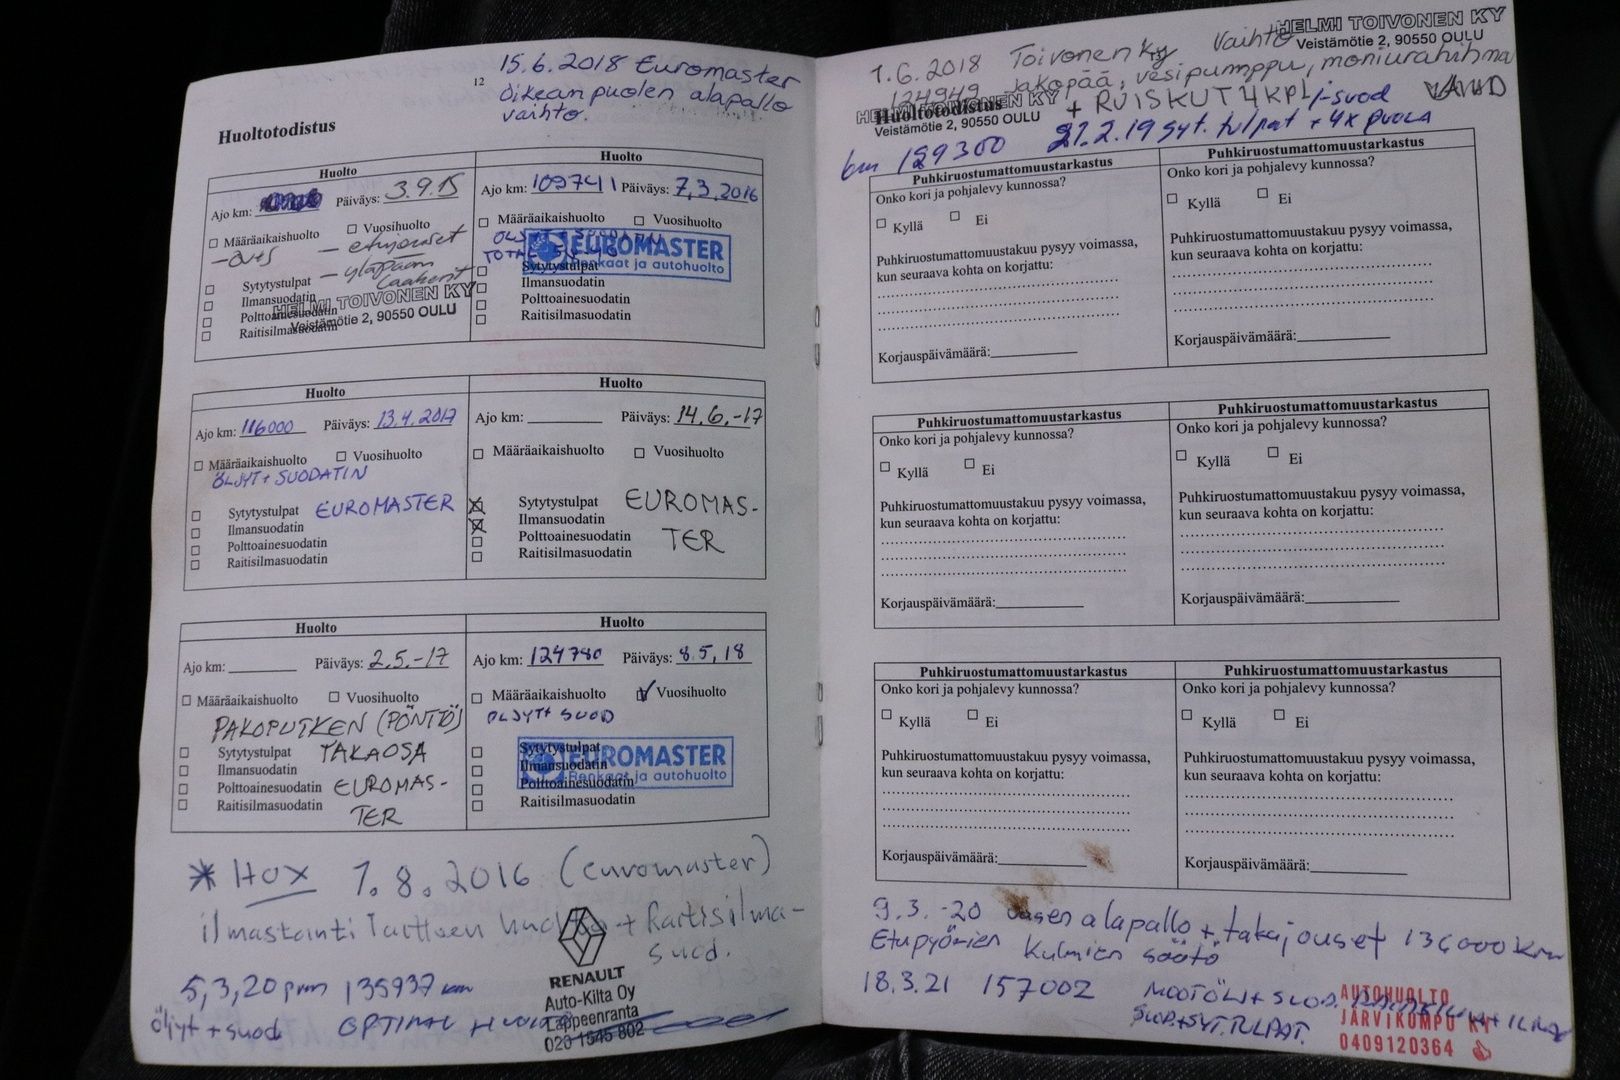 12
15.6.2018 Euromaster
Oikean puolen alapallo
vaihto.
Huoltotodistus
Huolto
Ajo km: Päiväys: 3.9.15
Määräaikaishuolto Vuosihuolto
- etujouset
- yläpään
laakerit
Sytytystulpat
Ilmansuodatin
Polttoainesuodatin
Raitisilmasuodatin
HELMI TOIVONEN KY
Veistämötie 2, 90550 OULU
Huolto
Ajo km: 109741 Päiväys: 7,3,2016
Määräaikaishuolto Vuosihuolto
EUROMASTER
Renkaat ja autohuolto
Sytytystulpat
Ilmansuodatin
Polttoainesuodatin
Raitisilmasuodatin
Huolto
Ajo km: 116000 Päiväys: 13.4.2017
Määräaikaishuolto Vuosihuolto
ÖLJYT+ SUODATIN
Sytytystulpat EUROMASTER
Ilmansuodatin
Polttoainesuodatin
Raitisilmasuodatin
Huolto
Ajo km: Päiväys: 14.6.-17
Määräaikaishuolto Vuosihuolto
Sytytystulpat EUROMAS-
Ilmansuodatin
Polttoainesuodatin TER
Raitisilmasuodatin
Huolto
Ajo km: Päiväys: 2.5.-17
Määräaikaishuolto Vuosihuolto
PAKOPUTKEN (PÖNTTÖ)
Sytytystulpat TAKAOSA
Ilmansuodatin
Polttoainesuodatin EUROMAS-
Raitisilmasuodatin TER
Huolto
Ajo km: 124780 Päiväys: 8.5,18
Määräaikaishuolto Vuosihuolto
ÖLJYT+ SUOD
EUROMASTER
Renkaat ja autohuolto
Sytytystulpat
Ilmansuodatin
Polttoainesuodatin
Raitisilmasuodatin
* HOX 1.8.2016 (euromaster)
ilmastointi laitteen huolto + Raitisilma-
suod.
5,3,20 pvm 135937 km
öljyt + suod OPTIMAL HUOLTO
RENAULT
Auto-Kilta Oy
Lappeenranta
020 1545 802
HELMI TOIVONEN KY
Veistämötie 2, 90550 OULU
1.6.2018 Toivonen Ky Vaihto
124949 Jakopää, vesipumppu, moniurahihna
HELMI TOIVONEN KY + RUISKUT 4 KPL
Huoltotodistus
Veistämötie 2, 90550 OULU
km 129300 21.2.19 syt. tulpat + 4x puola
Puhkiruostumattomuustarkastus
Onko kori ja pohjalevy kunnossa?
Kyllä Ei
Puhkiruostumattomuustakuu pysyy voimassa,
kun seuraava kohta on korjattu:
Korjauspäivämäärä:
Puhkiruostumattomuustarkastus
Onko kori ja pohjalevy kunnossa?
Kyllä Ei
Puhkiruostumattomuustakuu pysyy voimassa,
kun seuraava kohta on korjattu:
Korjauspäivämäärä:
Puhkiruostumattomuustarkastus
Onko kori ja pohjalevy kunnossa?
Kyllä Ei
Puhkiruostumattomuustakuu pysyy voimassa,
kun seuraava kohta on korjattu:
Korjauspäivämäärä:
Puhkiruostumattomuustarkastus
Onko kori ja pohjalevy kunnossa?
Kyllä Ei
Puhkiruostumattomuustakuu pysyy voimassa,
kun seuraava kohta on korjattu:
Korjauspäivämäärä:
Puhkiruostumattomuustarkastus
Onko kori ja pohjalevy kunnossa?
Kyllä Ei
Puhkiruostumattomuustakuu pysyy voimassa,
kun seuraava kohta on korjattu:
Korjauspäivämäärä:
Puhkiruostumattomuustarkastus
Onko kori ja pohjalevy kunnossa?
Kyllä Ei
Puhkiruostumattomuustakuu pysyy voimassa,
kun seuraava kohta on korjattu:
Korjauspäivämäärä:
9.3.-20 vasen alapallo + takajouset 136000 km
Etupyörien kulmien säätö
18.3.21 157002 MOOTÖLJ+ SUOD.
SUOD+SYT.TULPAT.
AUTOHUOLTO
JÄRVIKUMPU KY
0409120364